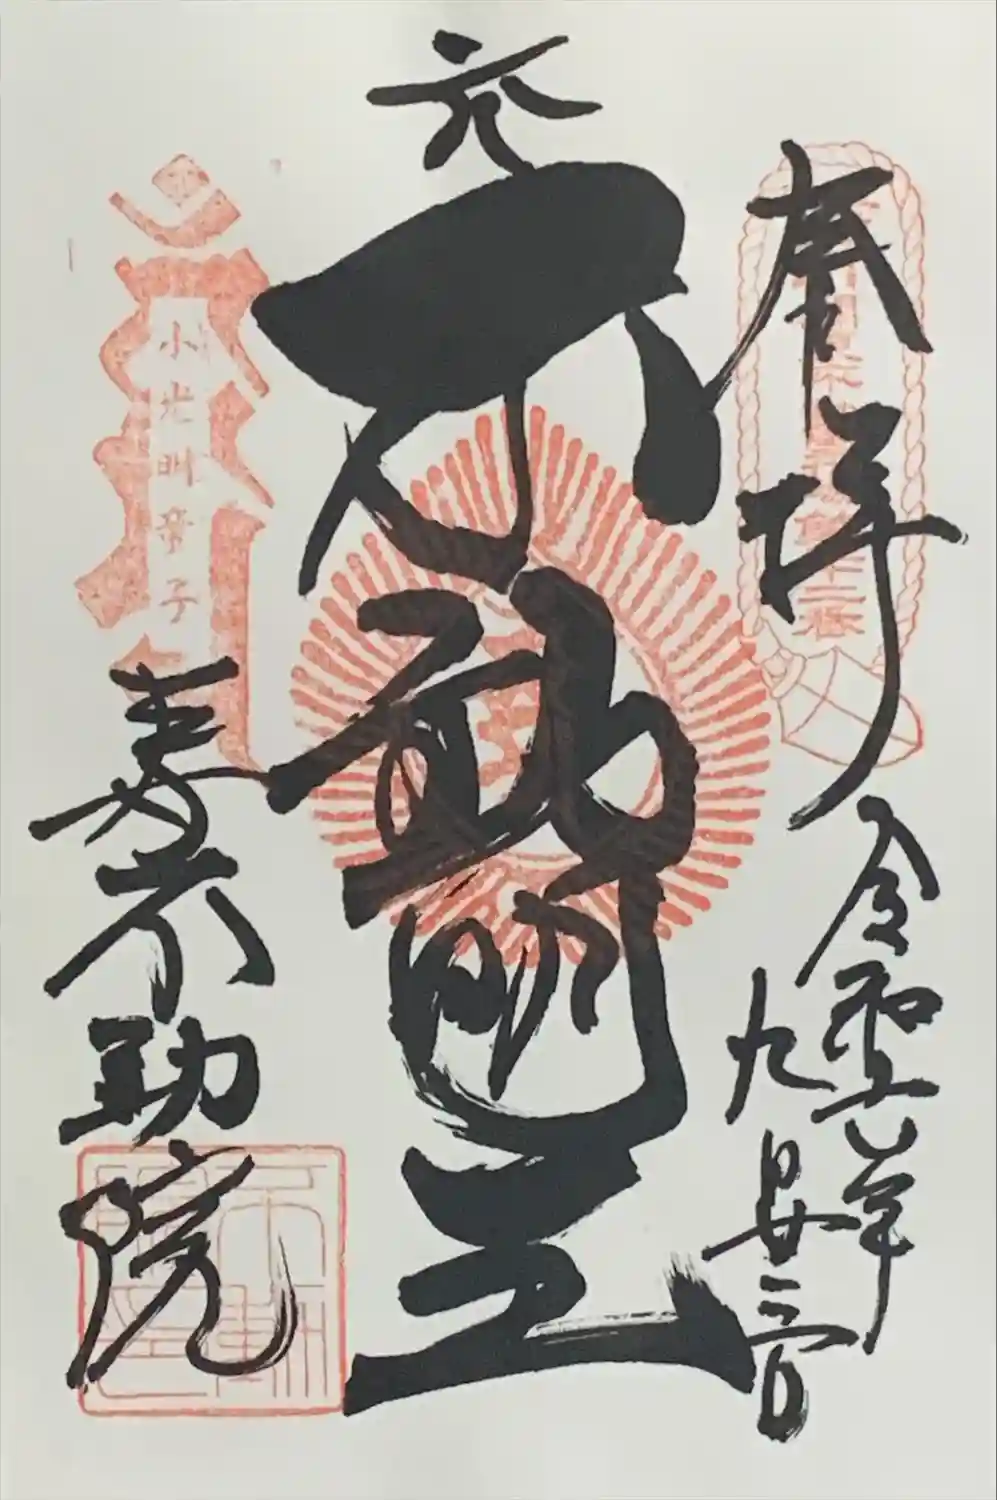 奉拝
令和六年
九月廿三日
元
不動明王
小光明童子
寿不動院